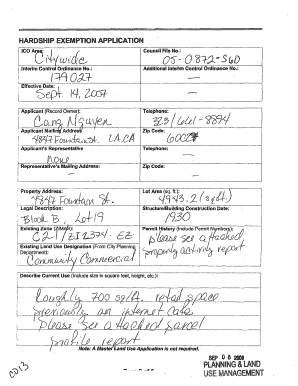 HARDSHIP EXEMPTION APPLICATION
ICO Area: Council File No.:
Citywide 05-0872-S60
Interim Control Ordinance No.: Additional Interim Control Ordinance No.:
179027 —
Effective Date:
Sept. 14, 2007 —
Applicant (Record Owner): Telephone:
Cang Nguyen 323/661-8894
Applicant Mailing Address Zip Code:
4847 Fountain St. LA, CA
Applicant's Representative Telephone:
None —
Representative's Mailing Address: Zip Code:
— —
Property Address: Lot Area (sq. ft.):
4847 Fountain St. 4943.2 (sqft)
Legal Description: Structure/Building Construction Date:
Block B, Lot 19 1930
Existing Zone (ZIMAS): Permit History (Include Permit Numbers):
C2-1/ZI2374. EZ please see attached
Existing Land Use Designation (From City Planning Department): property activity report
Community Commercial
Describe Current Use (Include size in square feet, height, etc.):
Roughly 700 sq/ft. retail space
previously an internet cafe.
Please see attached parcel
profile report
Note: A Master Land Use Application is not required.
SEP 08 2008
PLANNING & LAND
USE MANAGEMENT